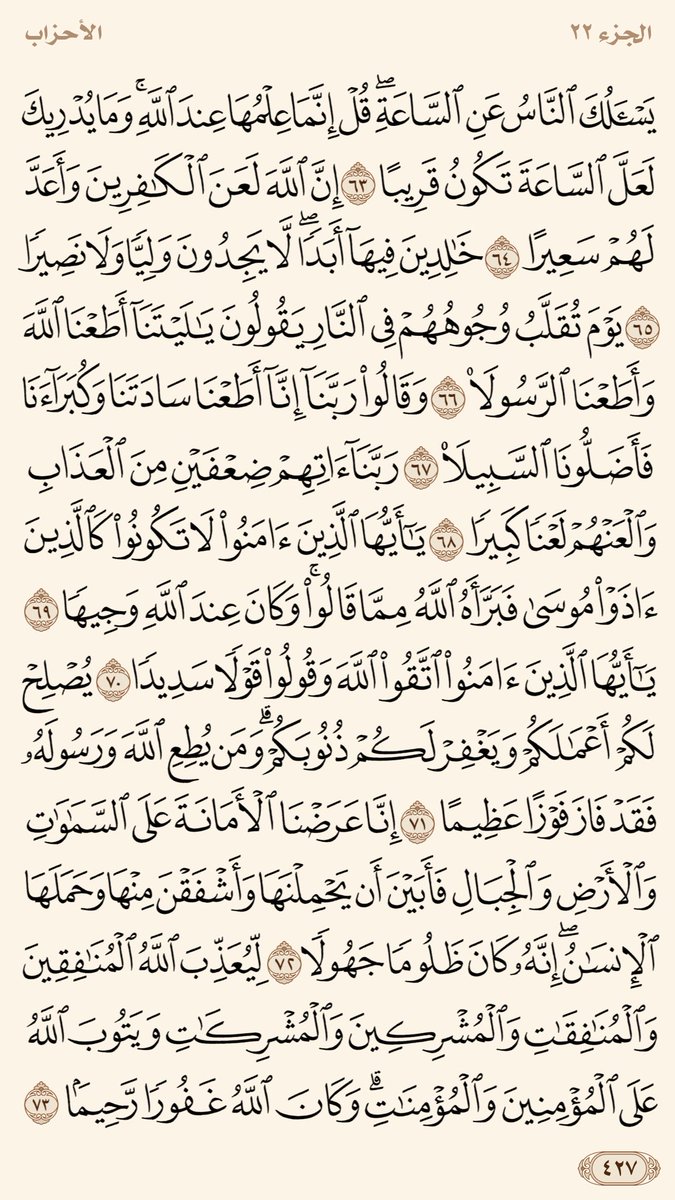 الجزء ٢٢ الأحزاب
يَسْـَٔلُكَ ٱلنَّاسُ عَنِ ٱلسَّاعَةِۖ قُلْ إِنَّمَا عِلْمُهَا عِندَ ٱللَّهِۚ وَمَا يُدْرِيكَ
لَعَلَّ ٱلسَّاعَةَ تَكُونُ قَرِيبًا ٦٣ إِنَّ ٱللَّهَ لَعَنَ ٱلْكَـٰفِرِينَ وَأَعَدَّ
لَهُمْ سَعِيرًا ٦٤ خَـٰلِدِينَ فِيهَآ أَبَدًاۖ لَّا يَجِدُونَ وَلِيًّا وَلَا نَصِيرًا
٦٥ يَوْمَ تُقَلَّبُ وُجُوهُهُمْ فِى ٱلنَّارِ يَقُولُونَ يَـٰلَيْتَنَآ أَطَعْنَا ٱللَّهَ
وَأَطَعْنَا ٱلرَّسُولَا۠ ٦٦ وَقَالُوا۟ رَبَّنَآ إِنَّآ أَطَعْنَا سَادَتَنَا وَكُبَرَآءَنَا
فَأَضَلُّونَا ٱلسَّبِيلَا۠ ٦٧ رَبَّنَآ ءَاتِهِمْ ضِعْفَيْنِ مِنَ ٱلْعَذَابِ
وَٱلْعَنْهُمْ لَعْنًا كَبِيرًا ٦٨ يَـٰٓأَيُّهَا ٱلَّذِينَ ءَامَنُوا۟ لَا تَكُونُوا۟ كَٱلَّذِينَ
ءَاذَوْا۟ مُوسَىٰ فَبَرَّأَهُ ٱللَّهُ مِمَّا قَالُوا۟ۚ وَكَانَ عِندَ ٱللَّهِ وَجِيهًا ٦٩
يَـٰٓأَيُّهَا ٱلَّذِينَ ءَامَنُوا۟ ٱتَّقُوا۟ ٱللَّهَ وَقُولُوا۟ قَوْلًا سَدِيدًا ٧٠ يُصْلِحْ
لَكُمْ أَعْمَـٰلَكُمْ وَيَغْفِرْ لَكُمْ ذُنُوبَكُمْۗ وَمَن يُطِعِ ٱللَّهَ وَرَسُولَهُۥ
فَقَدْ فَازَ فَوْزًا عَظِيمًا ٧١ إِنَّا عَرَضْنَا ٱلْأَمَانَةَ عَلَى ٱلسَّمَـٰوَٰتِ
وَٱلْأَرْضِ وَٱلْجِبَالِ فَأَبَيْنَ أَن يَحْمِلْنَهَا وَأَشْفَقْنَ مِنْهَا وَحَمَلَهَا
ٱلْإِنسَـٰنُۖ إِنَّهُۥ كَانَ ظَلُومًا جَهُولًا ٧٢ لِّيُعَذِّبَ ٱللَّهُ ٱلْمُنَـٰفِقِينَ
وَٱلْمُنَـٰفِقَـٰتِ وَٱلْمُشْرِكِينَ وَٱلْمُشْرِكَـٰتِ وَيَتُوبَ ٱللَّهُ
عَلَى ٱلْمُؤْمِنِينَ وَٱلْمُؤْمِنَـٰتِۗ وَكَانَ ٱللَّهُ غَفُورًا رَّحِيمًۢا ٧٣
٤٢٧